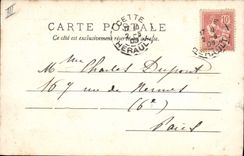 III
CARTE POSTALE
Ce côté est exclusivement réservé à l'adresse.
CETTE
HERAULT
10
Mme Charles Dupont
167 rue de Rennes
(6e)
Paris